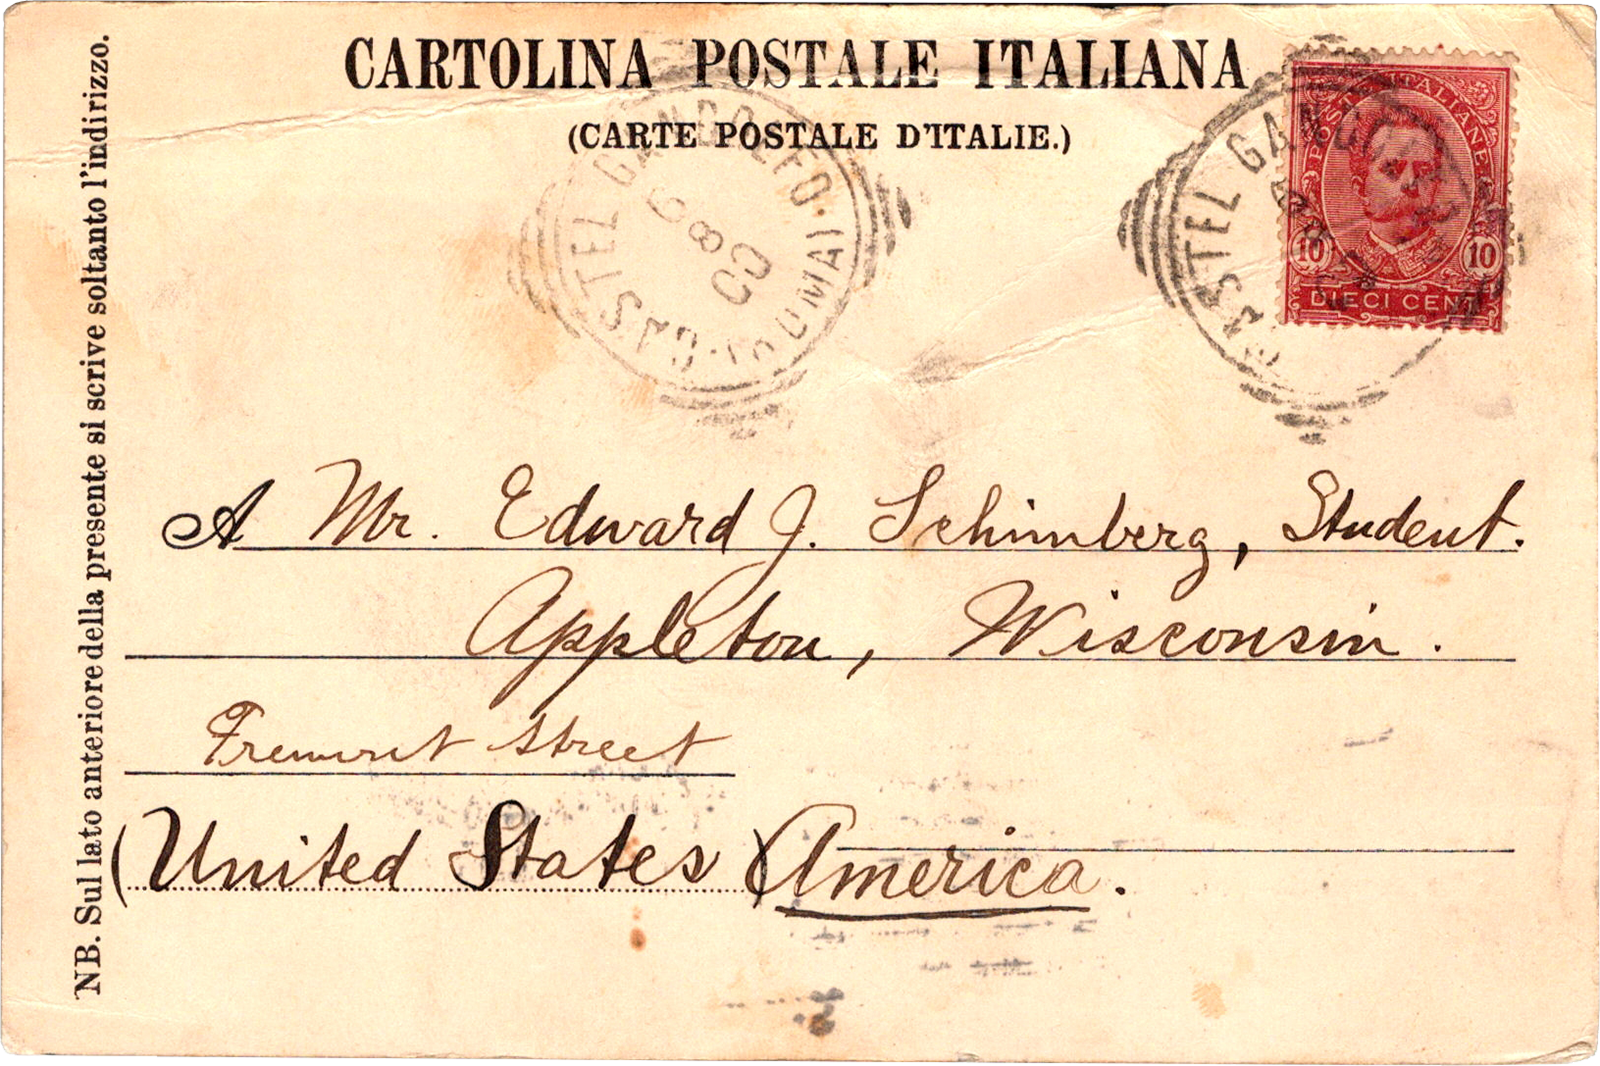 CARTOLINA POSTALE ITALIANA
(CARTE POSTALE D'ITALIE.)
NB. Sul lato anteriore della presente si scrive soltanto l'indirizzo.
CASTEL GANDOLFO (ROMA)
6 8 00
POSTE ITALIANE
10 10
DIECI CENT
CASTEL GANDOLFO
A Mr. Edward J. Schimberg, Student.
Appleton, Wisconsin.
Fremont Street
(United States) America.